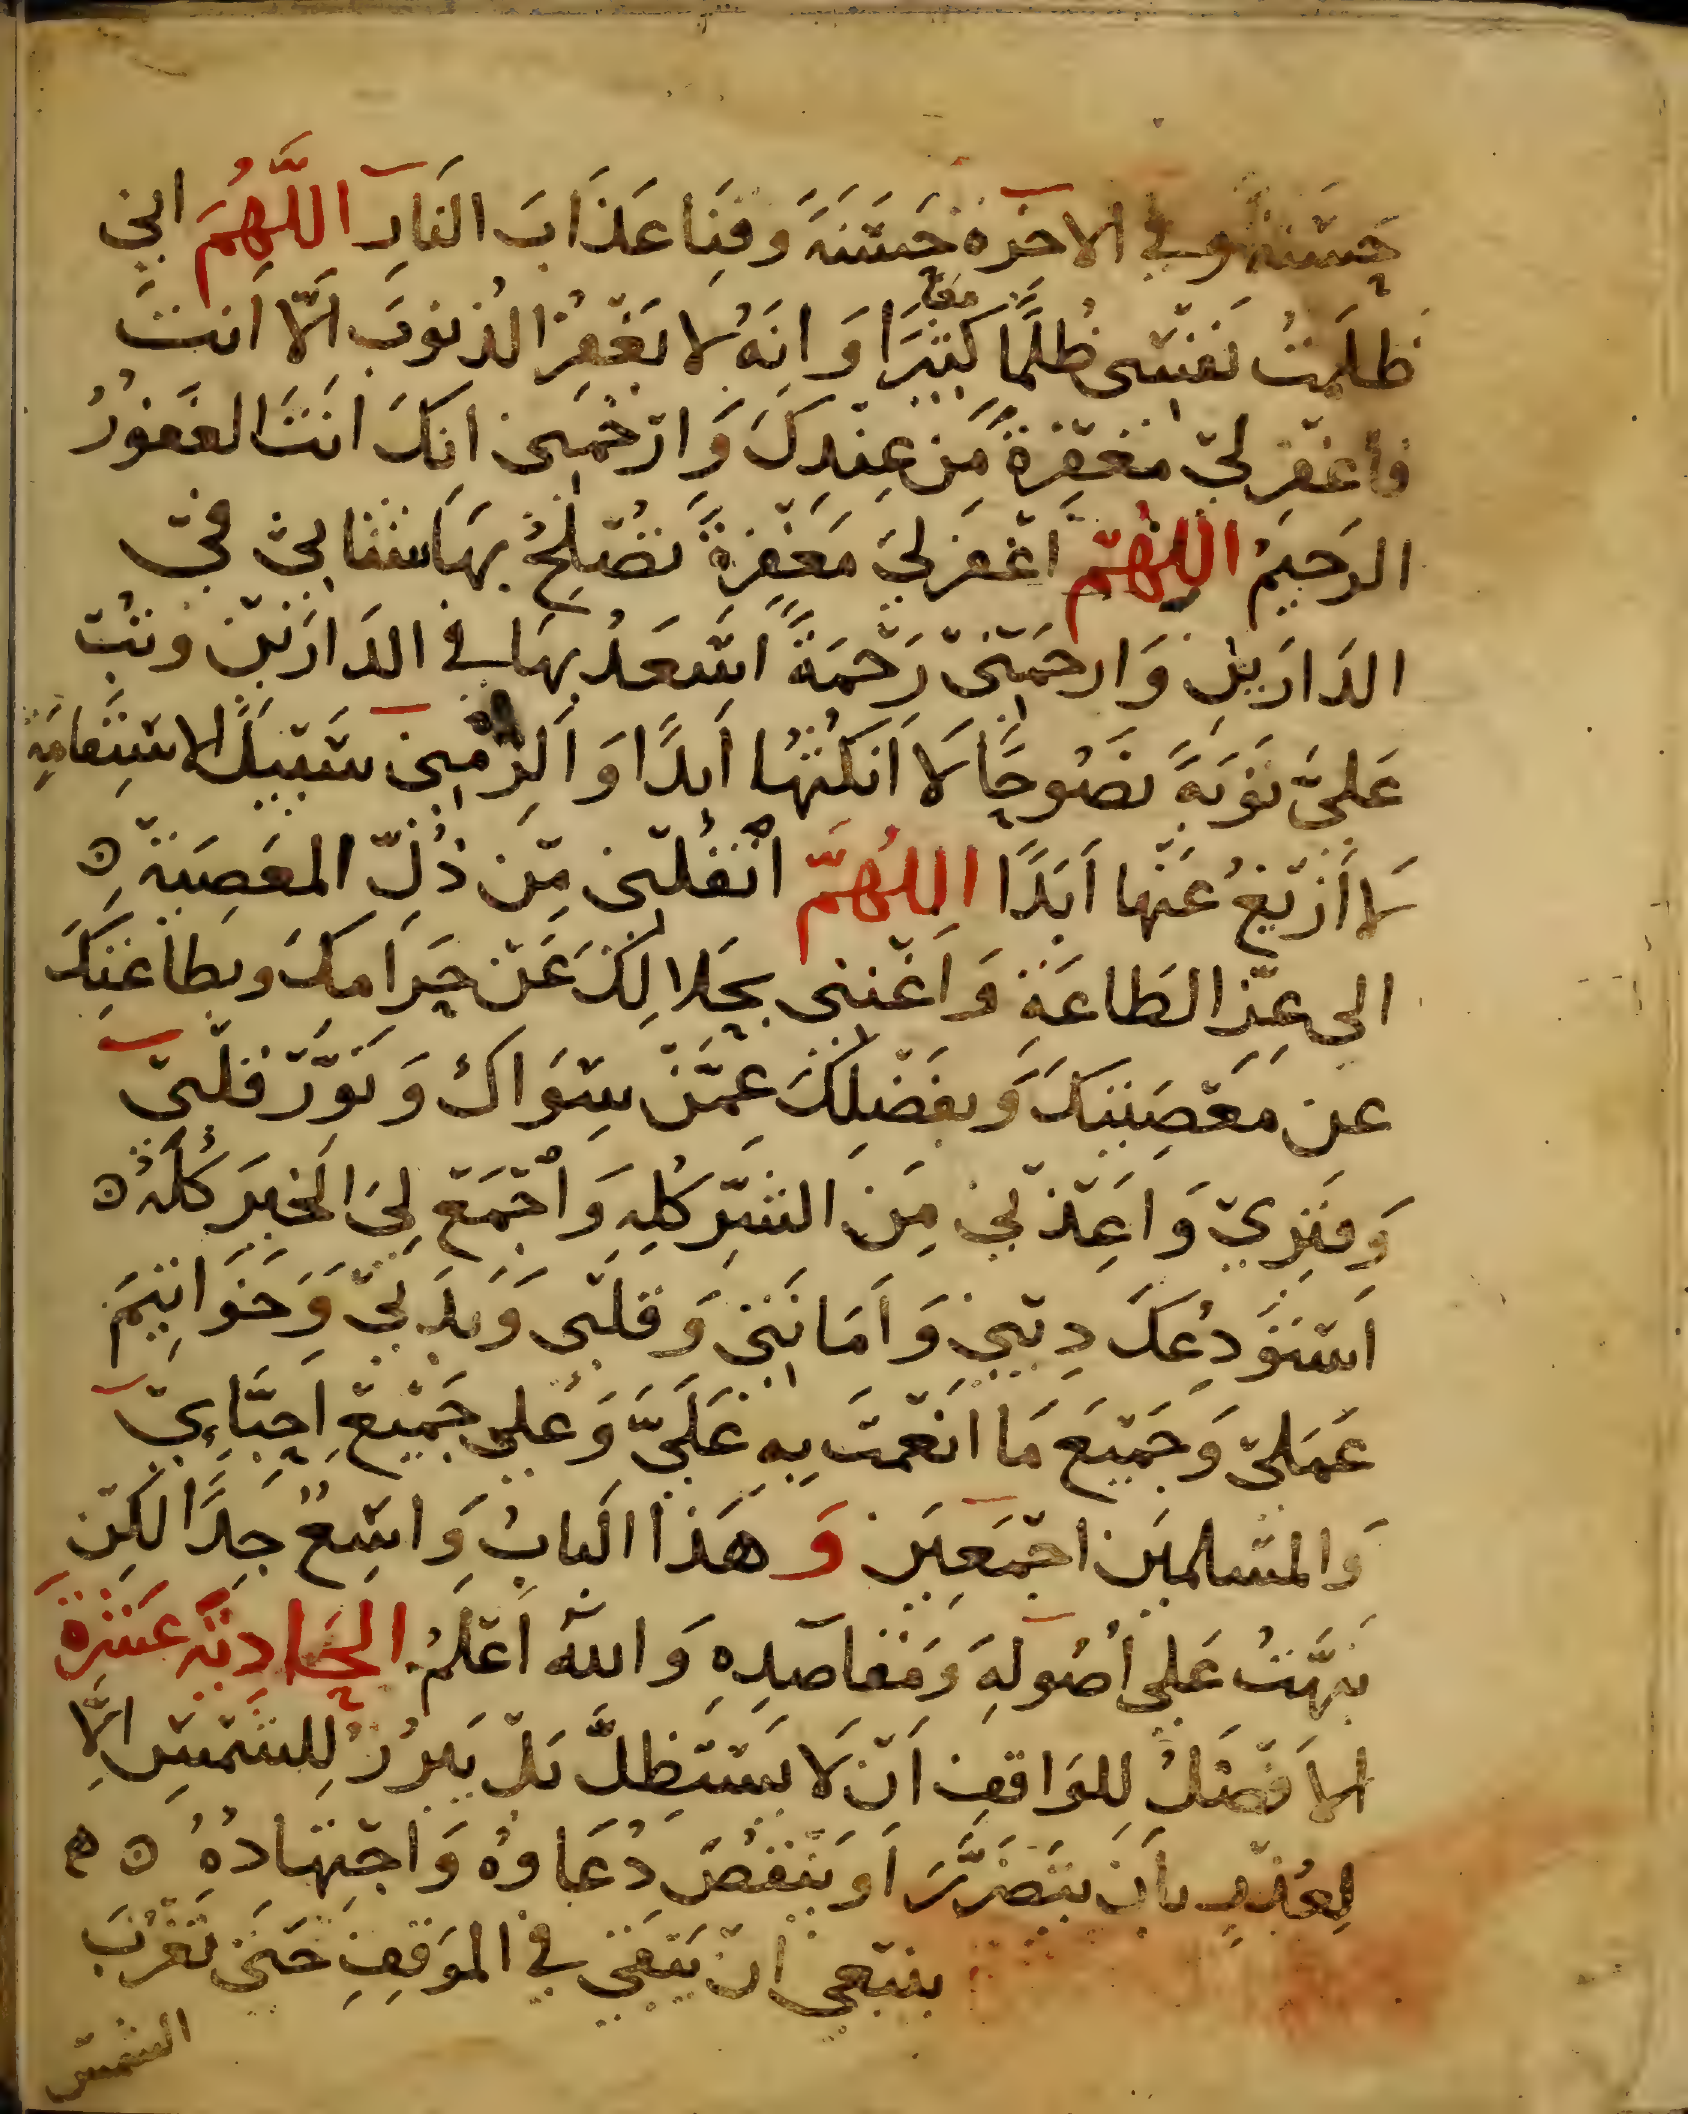 حَسَنَةً وفي الآخرة حَسَنَةً وقِنَا عَذَابَ النَارِ اللَّهُمَ اني
ظَلَمتُ نَفسِي ظُلمًا كَثِيرًا وَانَهُ لا يَغْفِرُ الذنوبَ اِلّا اَنتَ
فاغفِر ليْ مَغْفِرَةً مِن عِندِكَ وَارْحَمني انكَ انتَ الغَفورُ
الرَحيمُ اللهُمّ اغْفرلي مَغْفِرةً تُصْلِحُ بِهَا شَانِي في
الدَارَينِ وَارحَمْنيْ رَحْمَةً اَسْعَدُ بِهَا في الدَارَيْن وتُبْ
عَليَّ تَوبَةً نَصُوحًا لَا اَنكُثُهَا اَبدًا وَاَلزِمْنِي سَبِيلَ الاسْتِقَامَةِ
لَا اَزيْغُ عَنْها اَبَدًا اللهُمَّ انْقُلْني مِّن ذُلّ المعَصِيَةِ
الي عِزِّ الطَاعَةِ وَاَغْنني بحَلالِكَ عَنْ حَرَامِكَ وبطاعَتِكَ
عن مَعْصِيَتِكَ وَبفَضْلِكَ عِمَّنْ سِوَاكَ وَنَوّرْ قَلْبيْ
وَقَبْرِيْ وَاَعِذْنِي مِنَ الشَرِّ كُلِهِ وَاجْمَعْ لِيَ الخيرَ كُلَّهُ
اَسْتَوْدِعُكَ دِيْنِي وَاَمَانَتِي وَقلْبي وَبدَنيْ وَخَوَاتِيمَ
عَمَليْ وَجَمْيعَ مَا انَعْمتَ بِهِ عَلَيَّ وَعَلي جَمْيعِ اَحِبّاءِيْ
وَالمسْلمينَ اجْمَعِينَ وَهَذا البابُ وَاسِعٌ جِدًّا لكِن
نبهَّتُ عَلي اُصُولِهِ وَمَقاصِدِهِ وَاللهُ اَعْلَمُ الحَادِيَة عَشَرَةَ
الاَفْضَلُ لِلوَاقفِ اَنْ لَا يَسْتَظِلَّ بَلْ يَبرُزُ لِلشَمْسِ اِلَّا
لِعُذْرٍ باَن يَتَضَرَّرَ اَو يَنْقُصَ دُعَاوهُ وَاجْتِهَادُهُ
ينبَغي اَنْ يَبْقَي في الموَقِفِ حَتَي تَغْرُبَ
الشمسْ